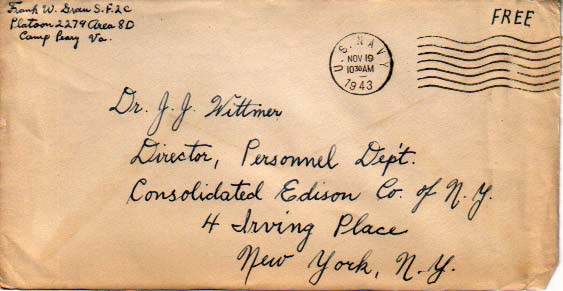 Frank W. Dvau S.F.2C
Platoon 2279 Area 8D
Camp Peary Va.
FREE
U.S. NAVY
NOV 19
10 30 AM
1943
Dr. J. J. Wittmer
Director, Personnel Dep't.
Consolidated Edison Co. of N.Y.
4 Irving Place
New York, N.Y.